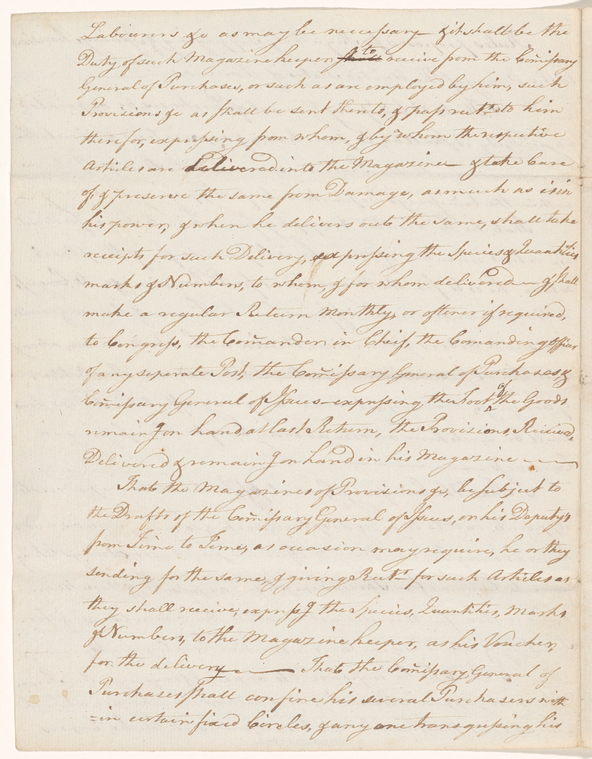 Labourers &c as may be necessary – & it shall be the
Duty of such Magazine keeper to receive from the Comissary
General of Purchases, or such as are employed by him, such
Provisions &c as shall be sent thereto, & pass rects to him
therefor, expressing from whom, & by whom the respective
Articles are delivered into the Magazine – & take Care
of, & preserve the same from Damage, as much as is in
his power, & when he delivers out the same, shall take
receipts for such Delivery, expressing the Species & Quantities
marks & Numbers, to whom, & for whom delivered – & shall
make a regular Return Monthly, or oftener if required,
to Congress, the Comander in Chief, the Comanding Officer
of any seperate Post, the Comissary General of Purchases &
Comissary General of Issues – expressing the of the Goods
remaing on hand at last Return, the Provisions Received,
Deliver'd & remaing on hand in his Magazine —
That the Magazines of Provisions &c, be subject to
the Drafts of the Comissary General of Issues, or his Deputy's
from Time to Time, as occasion may require, he or they
sending for the same, & giving Rects for such Articles as
they shall receive, expressg the Species, Quantities, Marks
& Numbers, to the Magazine keeper, as his Voucher,
for the delivery — That the Comissary General of
Purchases shall confine his several Purchasers with
=in certain fixed Circles, & any one transgressing his